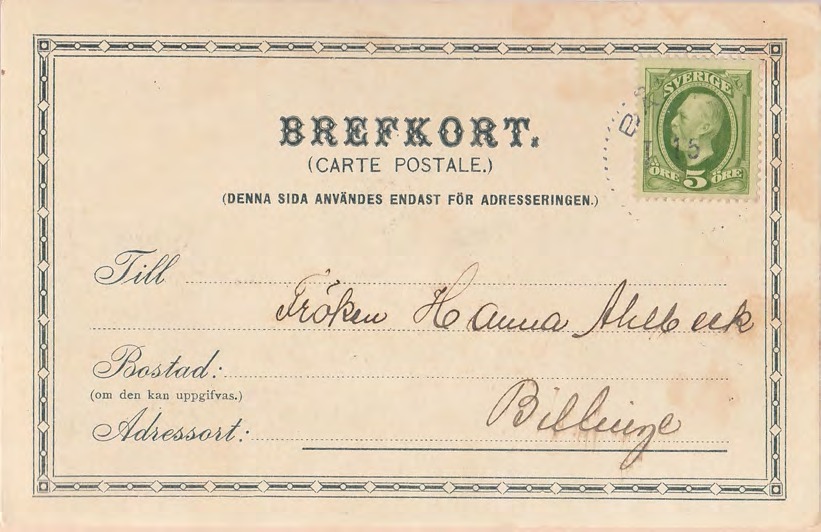 SVERIGE
15
ÖRE 5 ÖRE
BREFKORT.
(CARTE POSTALE.)
(DENNA SIDA ANVÄNDES ENDAST FÖR ADRESSERINGEN.)
Till
Fröken Hanna Ahlbeck
Bostad:
(om den kan uppgifvas.)
Billinge
Adressort: